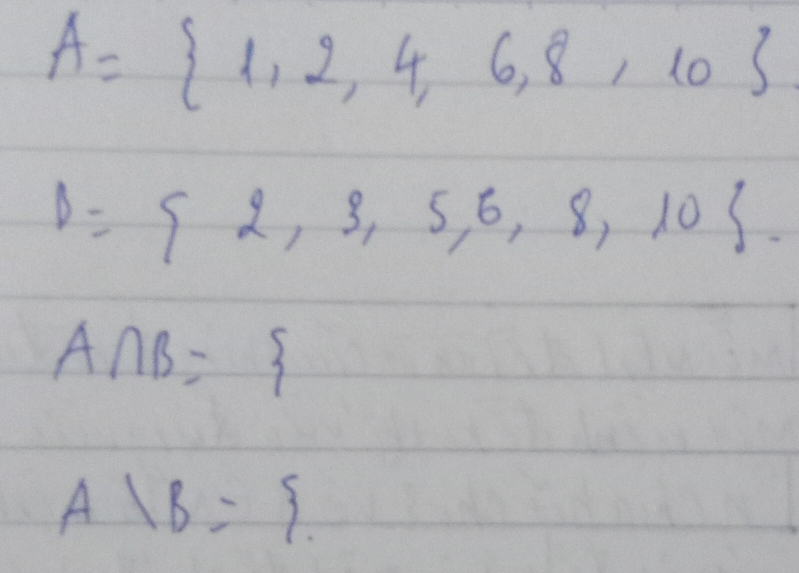 A = { 1, 2, 4, 6, 8, 10 }.
B = { 2, 3, 5, 6, 8, 10 }.
A ∩ B = {
A \ B = {.